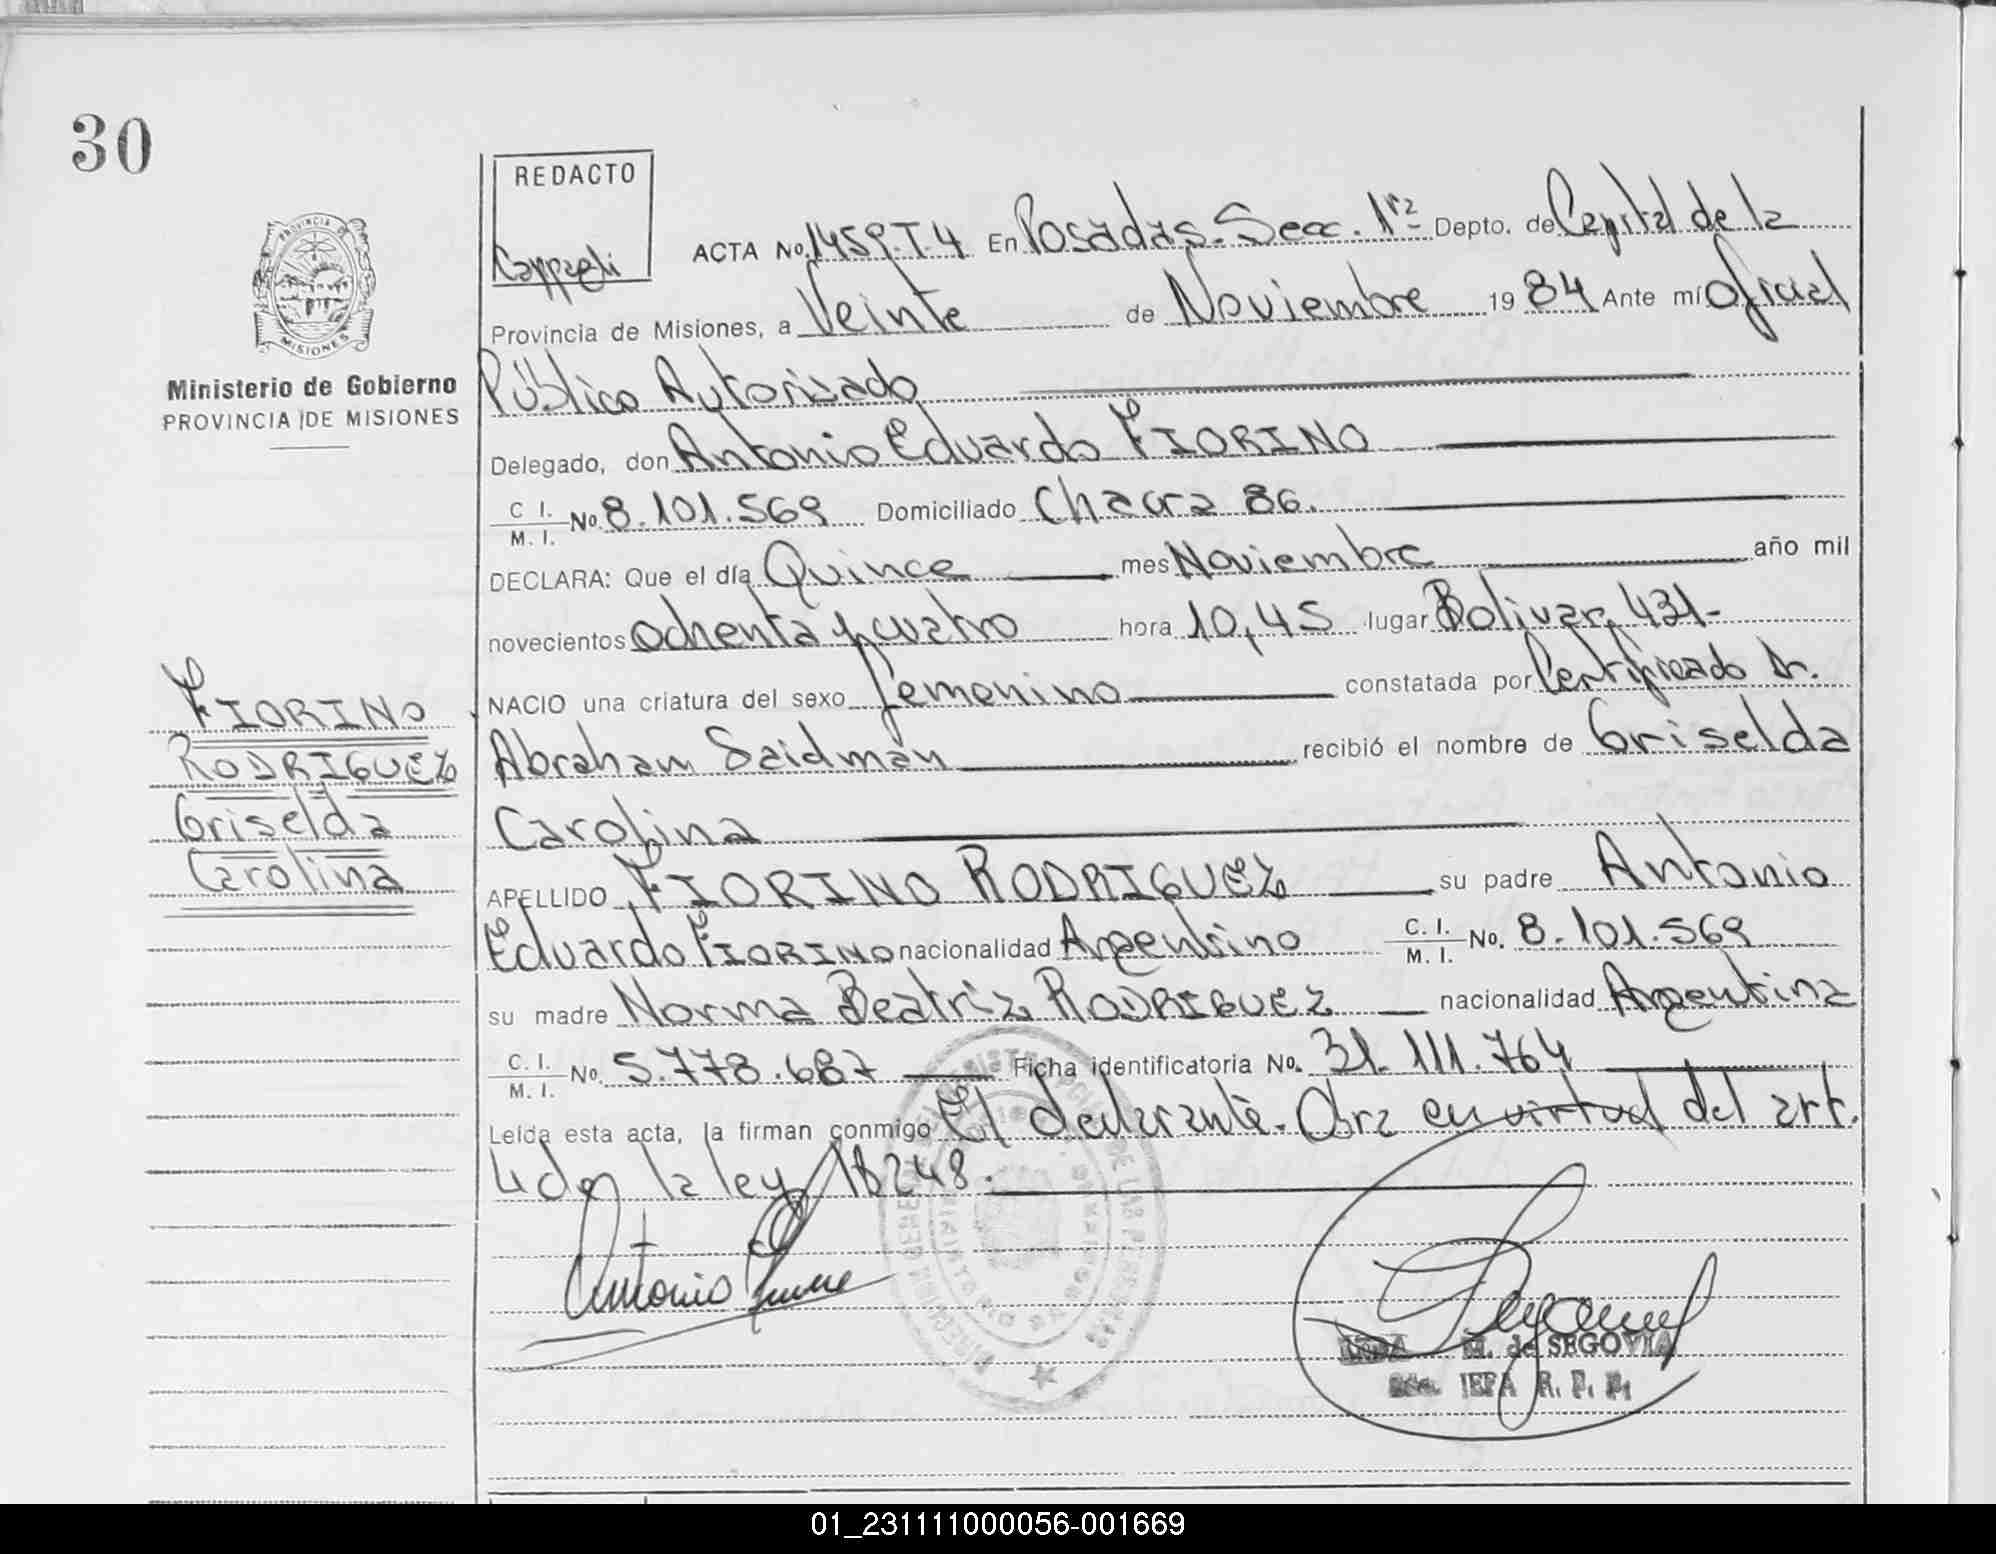 30
REDACTO
Cappeli
PROVINCIA DE
MISIONES
Ministerio de Gobierno
PROVINCIA DE MISIONES
ACTA No. 1459.T.4 En Posadas. Secc. 1ra Depto. de Capital de la
Provincia de Misiones, a Veinte de Noviembre 1984 Ante mí Oficial
Público Autorizado
Delegado, don Antonio Eduardo FIORINO
C I.
M. I. No. 8.101.569 Domiciliado Chacra 86.
DECLARA: Que el día Quince mes Noviembre año mil
novecientos ochenta y cuatro hora 10,45 lugar Bolivar 431-
NACIO una criatura del sexo femenino constatada por Certificado Dr.
Abraham Saidman recibió el nombre de Griselda
Carolina
APELLIDO FIORINO RODRIGUEZ su padre Antonio
Eduardo FIORINO nacionalidad Argentino C. I.
M. I. No. 8.101.569
su madre Norma Beatriz RODRIGUEZ nacionalidad Argentina
C. I.
M. I. No. 5.778.687 Ficha identificatoria No. 31.111.764
Leída esta acta, la firman conmigo El declarante. Obra en virtud del art.
4 de la ley 18248.
FIORINO
RODRIGUEZ
Griselda
Carolina
Antonio
M. de SEGOVIA
R. P. P.
DE LAS PERSONAS
01_231111000056-001669